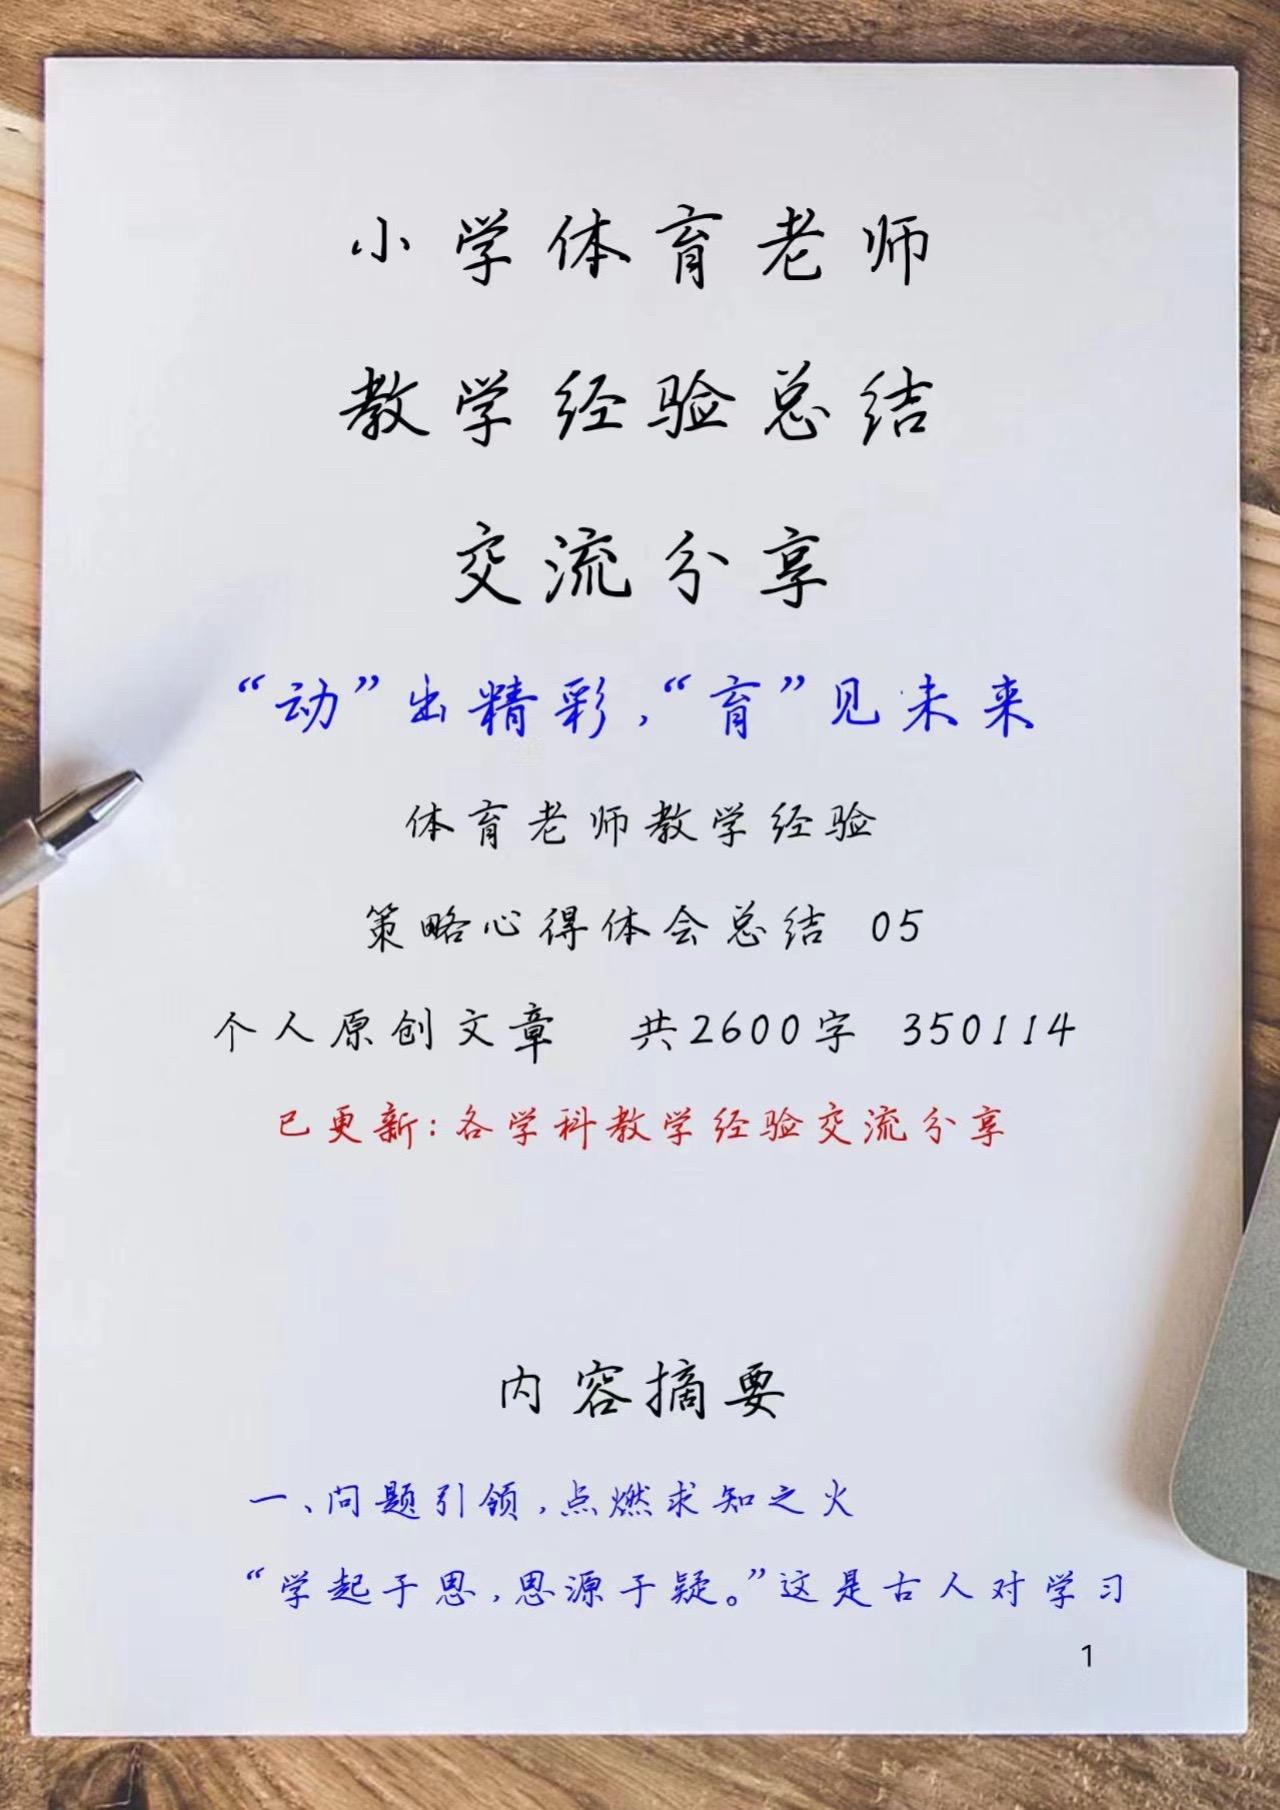 小学体育老师
教学经验总结
交流分享
“动”出精彩，“育”见未来
体育老师教学经验
策略心得体会总结 05
个人原创文章 共2600字 350114
已更新：各学科教学经验交流分享
内容摘要
一、问题引领，点燃求知之火
“学起于思，思源于疑。”这是古人对学习
1